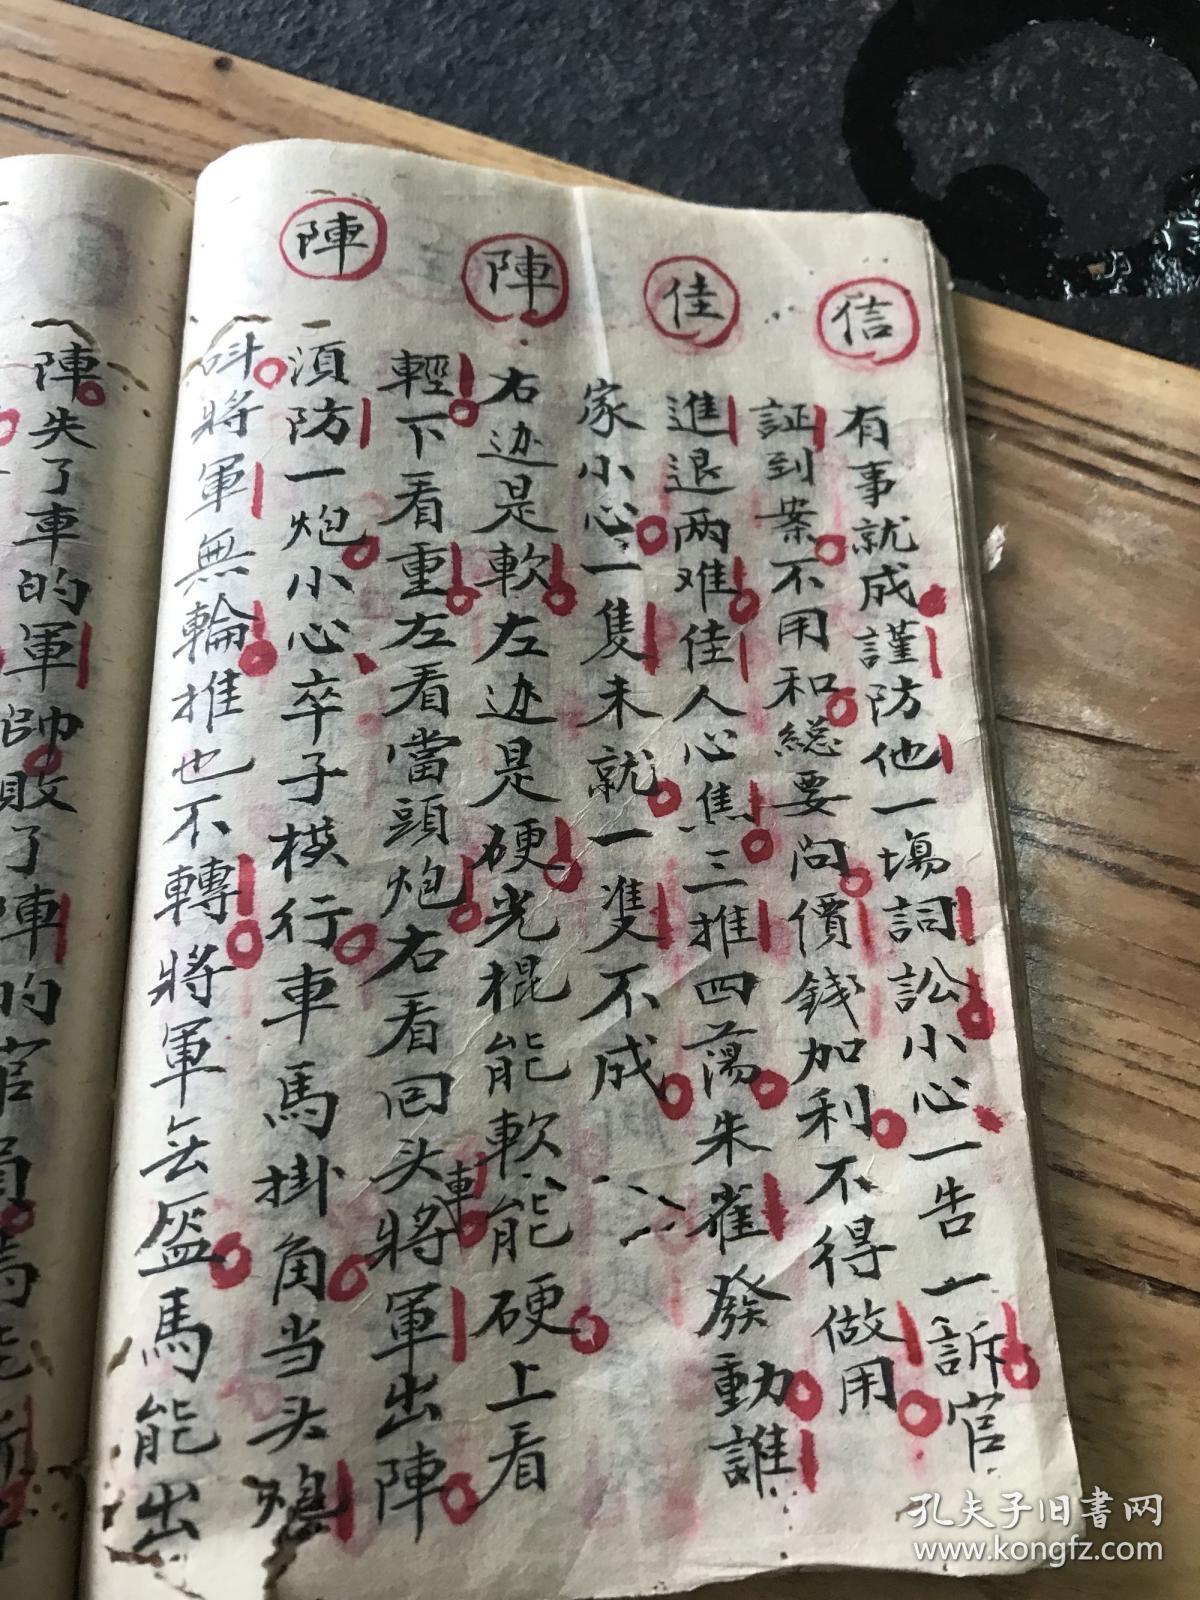 信
佳
陣
陣
有事就成謹防他一場詞訟小心一告一訴官
証到案不用和総要问價錢加利不得做用
進退两难佳人心焦三推四蕩朱雀發動誰
家小心一隻未就一隻不成
右边是軟左边是硬光棍能軟能硬上看
輕下看重左看當頭炮右看回头將軍出陣
車
須防一炮小心卒子模行車馬掛角当头炮
將軍無輪推也不轉將軍去盔馬能出
陣失了車的軍帥敗了陣的官
孔夫子旧书网
www.kongfz.com